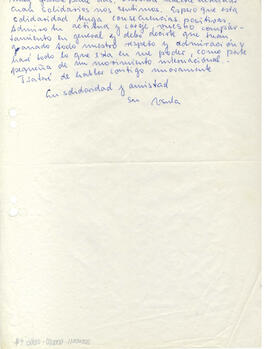 cuan solidarios nos sentimos. Espero que esta
solidaridad tenga consecuencias positivas.
Admiro tu actitud y coraje, vuestro compor-
tamiento en general y debo decirte que tienen
ganado todo nuestro respeto y admiración y
haré todo lo que esté en mi poder, como parte
pequeña de un movimiento internacional.
Trataré de hablar contigo nuevamente
En solidaridad y amistad